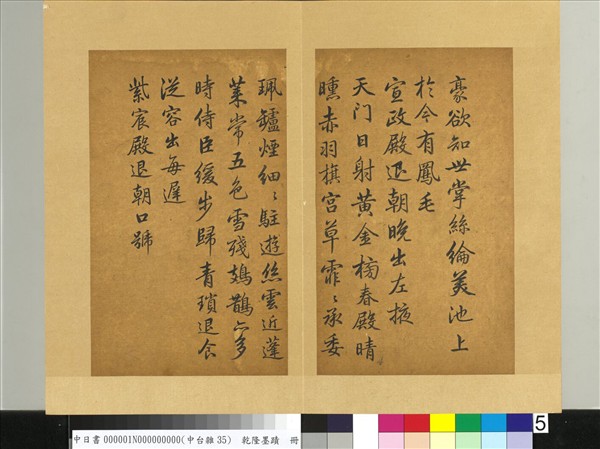 豪欲知世掌絲綸美池上
於今有鳳毛
宣政殿退朝晚出左掖
天门日射黃金榜春殿晴
曛赤羽旗宮草霏〻承委
珮鑪煙細〻駐遊絲雲近蓬
萊常五色雪殘鳷鵲亦多
時侍臣緩步歸青瑣退食
從容出每遲
紫宸殿退朝口號
中日書000001N000000000(中台雜35) 乾隆墨蹟 冊
5